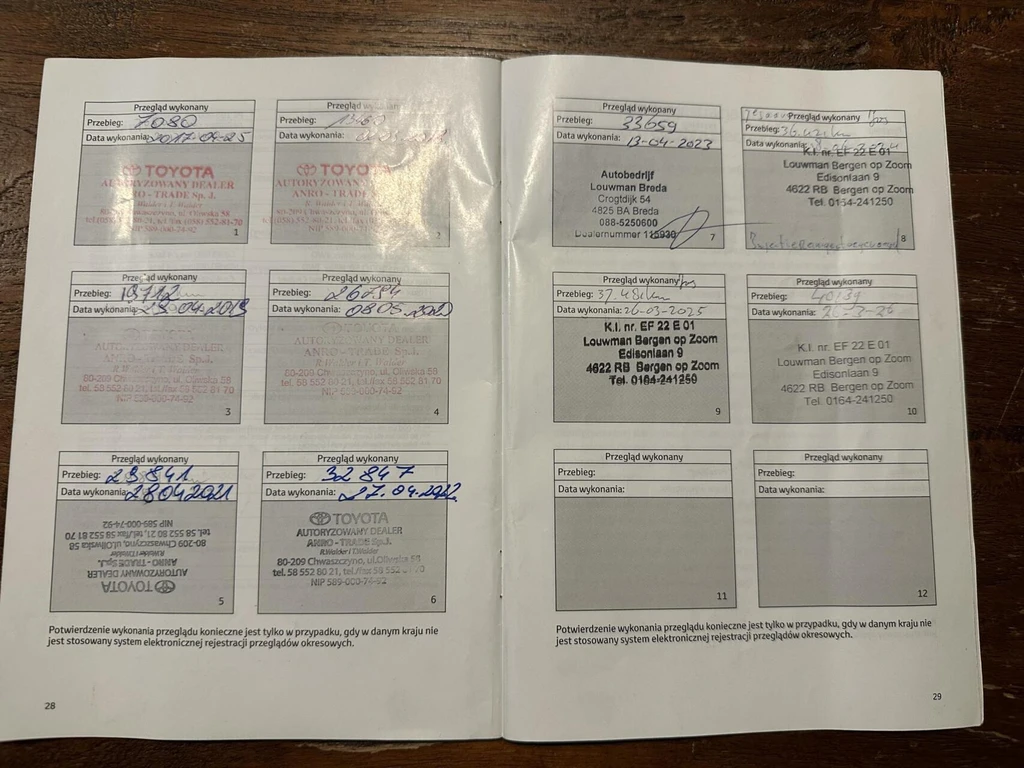 Przegląd wykonany
Przebieg: 7080
Data wykonania: 2017-04-25
TOYOTA
AUTORYZOWANY DEALER
ANRO - TRADE Sp. J.
R. Walder i T. Walder
80-209 Chwaszczyno, ul. Oliwska 58
tel. (058) 552-81-70
NIP 589-000-74-92
1
Przegląd wykonany
Przebieg:
Data wykonania:
TOYOTA
AUTORYZOWANY DEALER
ANRO - TRADE Sp. J.
R. Walder i T. Walder
80-209 Chwaszczyno, ul. Oliwska 58
NIP 589-000-74-92
2
Przegląd wykonany
Przebieg: 19712
Data wykonania: 23.04.2019
AUTORYZOWANY DEALER
ANRO - TRADE Sp.J.
R. Walder i T. Walder
80-209 Chwaszczyno, ul. Oliwska 58
tel. 58 552 80 21, tel./fax 58 552 81 70
NIP 589-000-74-92
3
Przegląd wykonany
Przebieg:
Data wykonania: 08.05.2020
TOYOTA
AUTORYZOWANY DEALER
ANRO - TRADE Sp.J.
R. Walder i T. Walder
80-209 Chwaszczyno, ul. Oliwska 58
tel. 58 552 80 21, tel./fax 58 552 81 70
NIP 589-000-74-92
4
Przegląd wykonany
Przebieg: 29 841
Data wykonania: 28042021
TOYOTA
AUTORYZOWANY DEALER
ANRO - TRADE Sp.J.
R.Walder i T.Walder
80-209 Chwaszczyno, ul.Oliwska 58
tel. 58 552 80 21, tel./fax 58 552 81 70
NIP 589-000-74-92
5
Przegląd wykonany
Przebieg: 32 847
Data wykonania: 27.04.2022
TOYOTA
AUTORYZOWANY DEALER
ANRO - TRADE Sp.J.
R.Walder i T.Walder
80-209 Chwaszczyno, ul.Oliwska 58
tel. 58 552 80 21, tel./fax 58 552 70
NIP 589-000-74-92
6
Potwierdzenie wykonania przeglądu konieczne jest tylko w przypadku, gdy w danym kraju nie
jest stosowany system elektronicznej rejestracji przeglądów okresowych.
28
Przegląd wykonany
Przebieg: 33659
Data wykonania: 13-04-2023
Autobedrijf
Louwman Breda
Crogtdijk 54
4825 BA Breda
088-5250600
Dealernummer 115930
7
Przegląd wykonany
Przebieg:
Data wykonania:
K.I. nr. EF 22 E 01
Louwman Bergen op Zoom
Edisonlaan 9
4622 RB Bergen op Zoom
Tel. 0164-241250
8
Przegląd wykonany
Przebieg:
Data wykonania: 26-03-2025
K.I. nr. EF 22 E 01
Louwman Bergen op Zoom
Edisonlaan 9
4622 RB Bergen op Zoom
Tel. 0164-241250
9
Przegląd wykonany
Przebieg: 40139
Data wykonania: 26-3-26
K.I. nr. EF 22 E 01
Louwman Bergen op Zoom
Edisonlaan 9
4622 RB Bergen op Zoom
Tel. 0164-241250
10
Przegląd wykonany
Przebieg:
Data wykonania:
11
Przegląd wykonany
Przebieg:
Data wykonania:
12
Potwierdzenie wykonania przeglądu konieczne jest tylko w przypadku, gdy w danym kraju nie
jest stosowany system elektronicznej rejestracji przeglądów okresowych.
29